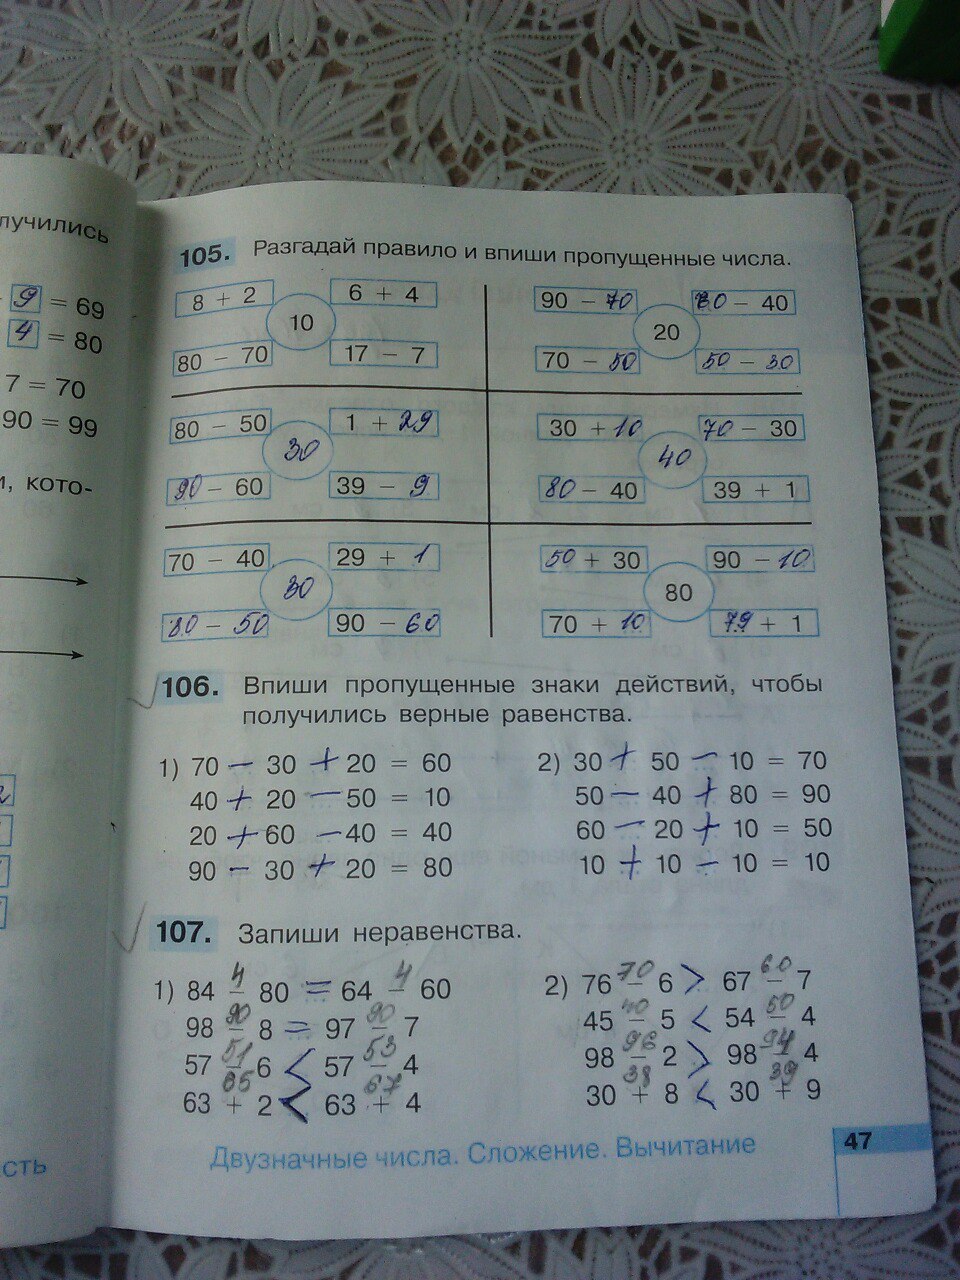 лучились
9 = 69
4 = 80
7 = 70
90 = 99
и, кото-
сть
105. Разгадай правило и впиши пропущенные числа.
8 + 2 6 + 4 90 − 70 60 − 40
10 20
80 − 70 17 − 7 70 − 50 50 − 30
80 − 50 1 + 29 30 + 10 70 − 30
30 40
90 − 60 39 − 9 80 − 40 39 + 1
70 − 40 29 + 1 50 + 30 90 − 10
30 80
80 − 50 90 − 60 70 + 10 79 + 1
106. Впиши пропущенные знаки действий, чтобы
получились верные равенства.
1) 70 − 30 + 20 = 60 2) 30 + 50 − 10 = 70
40 + 20 − 50 = 10 50 − 40 + 80 = 90
20 + 60 − 40 = 40 60 − 20 + 10 = 50
90 − 30 + 20 = 80 10 + 10 − 10 = 10
107. Запиши неравенства.
4 4 70 60
1) 84 − 80 = 64 − 60 2) 76 − 6 > 67 − 7
90 90 40 50
98 − 8 = 97 − 7 45 − 5 < 54 − 4
51 53 96 94
57 − 6 < 57 − 4 98 − 2 > 98 − 4
65 67 38 39
63 + 2 < 63 + 4 30 + 8 < 30 + 9
Двузначные числа. Сложение. Вычитание
47